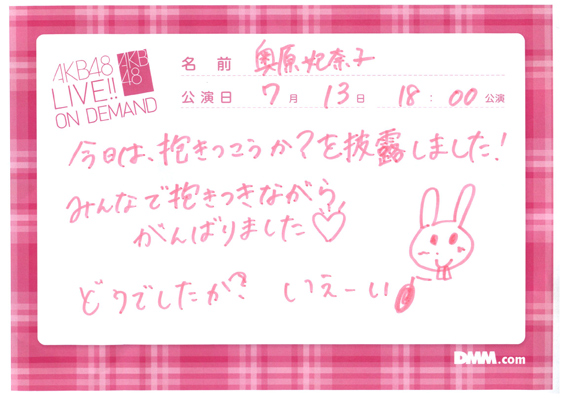 AKB48
LIVE!!
ON DEMAND
AKB
48
名前 奥原妃奈子
公演日 7月 13日 18:00公演
今日は、抱きつこうか?を披露しました!
みんなで抱きつきながら
がんばりました♡
どうでしたか? いえーい
DMM.com